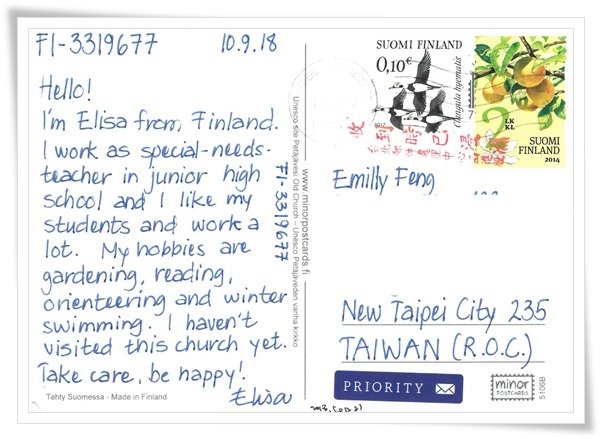 FI-3319677 10.9.18
Hello!
I'm Elisa from Finland.
I work as special-needs-
teacher in junior high
school and I like my
students and work a
lot. My hobbies are
gardening, reading,
orienteering and winter
swimming. I haven't
visited this church yet.
Take care, be happy!
Elisa
Tehty Suomessa - Made in Finland
FI-3319677
Unesco site Petäjävesi Old Church – Unesco Petäjäveden vanha kirkko
www.minorpostcards.fi
SUOMI FINLAND
0,10€
Clangula hyemalis
2017
2 LK
KL
SUOMI
FINLAND
2014
Emilly Feng
New Taipei City 235
TAIWAN (R.O.C.)
PRIORITY
minor
POSTCARDS
51068